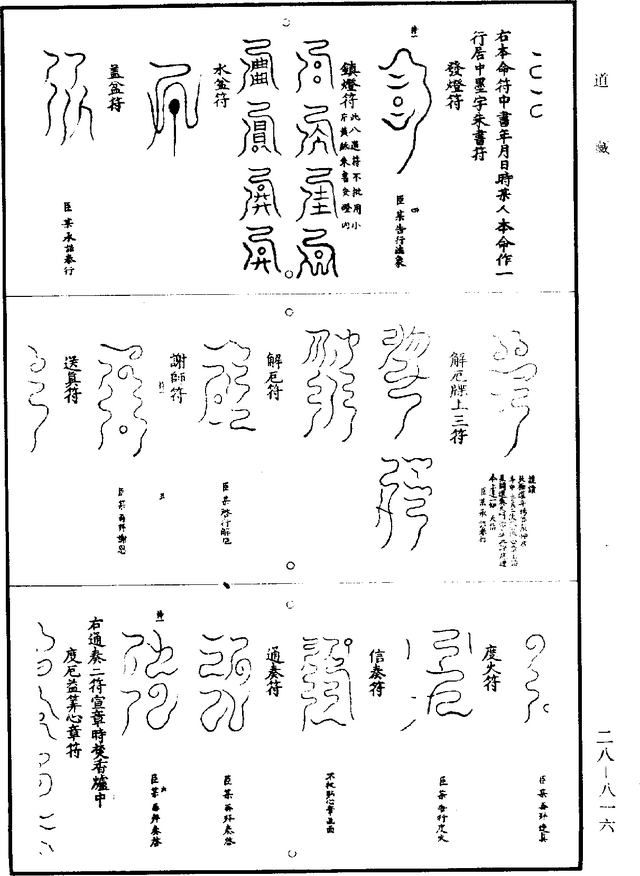 道藏
右本命符中書年月日時某人本命作一
行居中墨字朱書符
發燈符
臣某告行法象
鎮燈符
此八道符不批用小
片黃紙朱書安燈內
水盆符
蓋盆符
臣某承誥奉行
解厄牒上三符
解厄符
臣某啓行解厄
謝師符
臣某再拜謝恩
送真符
臣某再拜送真
度火符
臣某告行度火
信奏符
不批貼心章函面
通奏符
臣某再拜奏啓
臣某再拜奏啓
右通奏二符宣章時焚香爐中
度厄益筭心章符
二八—八一六